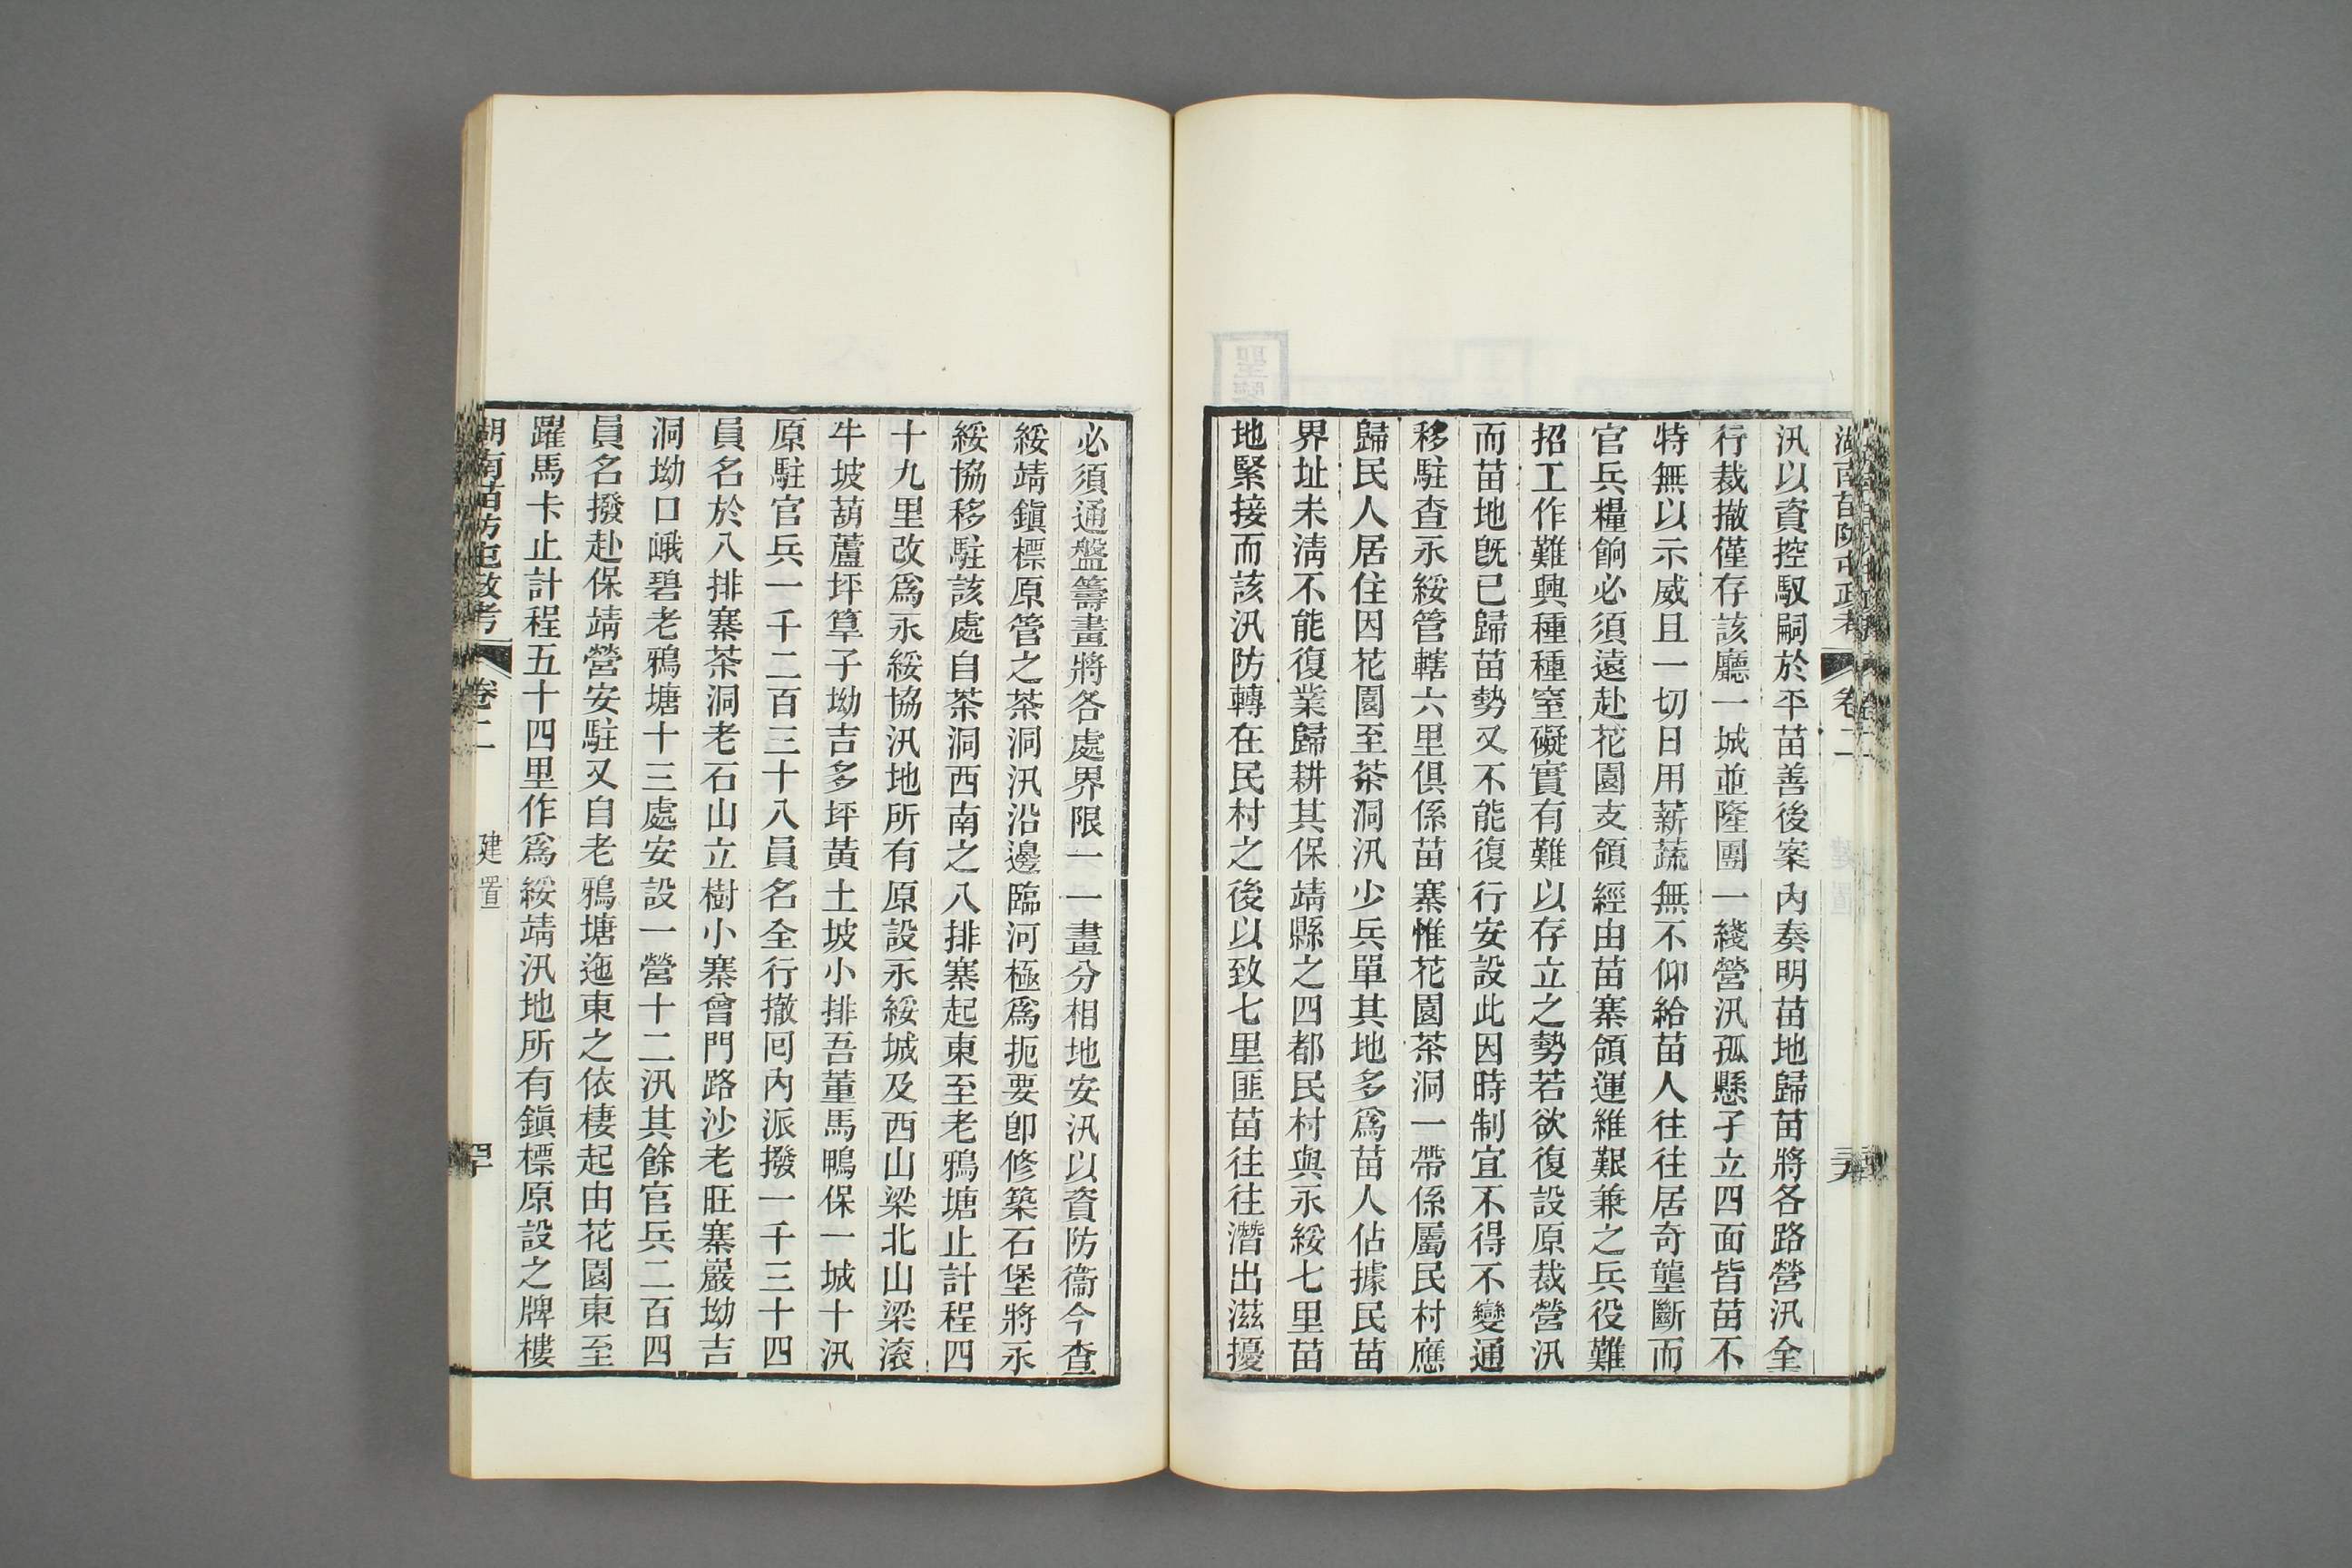 湖南苗防屯政考 卷二
汛以資控馭嗣於平苗善後案內奏明苗地歸苗將各路營汛全
行裁撤僅存該廳一城並隆團一綫營汛孤懸孑立四面皆苗不
特無以示威且一切日用薪蔬無不仰給苗人往往居奇壟斷而
官兵糧餉必須遠赴花園支領經由苗寨領運維艱兼之兵役難
招工作難興種種窒礙實有難以存立之勢若欲復設原裁營汛
而苗地旣已歸苗勢又不能復行安設此因時制宜不得不變通
移駐查永綏管轄六里俱係苗寨惟花園茶洞一帶係屬民村應
歸民人居住因花園至茶洞汛少兵單其地多爲苗人佔據民苗
界址未淸不能復業歸耕其保靖縣之四都民村與永綏七里苗
地緊接而該汛防轉在民村之後以致七里匪苗往往潛出滋擾
必須通盤籌畫將各處界限一一畫分相地安汛以資防衞今查
綏靖鎭標原管之茶洞汛沿邊臨河極爲扼要卽修築石堡將永
綏協移駐該處自茶洞西南之八排寨起東至老鴉塘止計程四
十九里改爲永綏協汛地所有原設永綏城及西山梁北山梁滾
牛坡葫蘆坪箪子坳吉多坪黃土坡小排吾董馬鴨保一城十汛
原駐官兵一千二百三十八員名全行撤囘內派撥一千三十四
員名於八排寨茶洞老石山立樹小寨曾門路沙老旺寨巖坳吉
洞坳口峨碧老鴉塘十三處安設一營十二汛其餘官兵二百四
員名撥赴保靖營安駐又自老鴉塘迤東之依棲起由花園東至
躍馬卡止計程五十四里作爲綏靖汛地所有鎭標原設之牌樓
湖南苗防屯政考 卷二 建置 四十